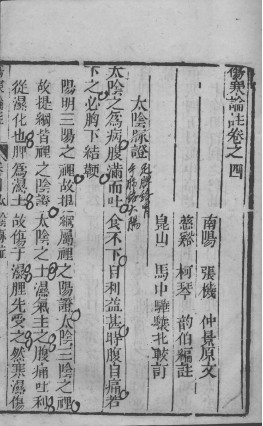 傷寒論註卷之四
南陽 張機 仲景原文
慈谿 柯琴 韵伯編註
崑山 馬中驊驤北較訂
太陰脉證
太陰之爲病腹滿而吐食不下自利益甚時腹自痛若
下之必胸下結鞕
陽明三陽之裡故提綱屬裡之陽證太陰三陰之裡
故提綱皆裡之陰證太陰之上濕氣主之腹痛吐利
從濕化也脾爲濕土故傷于濕脾先受之然寒濕傷